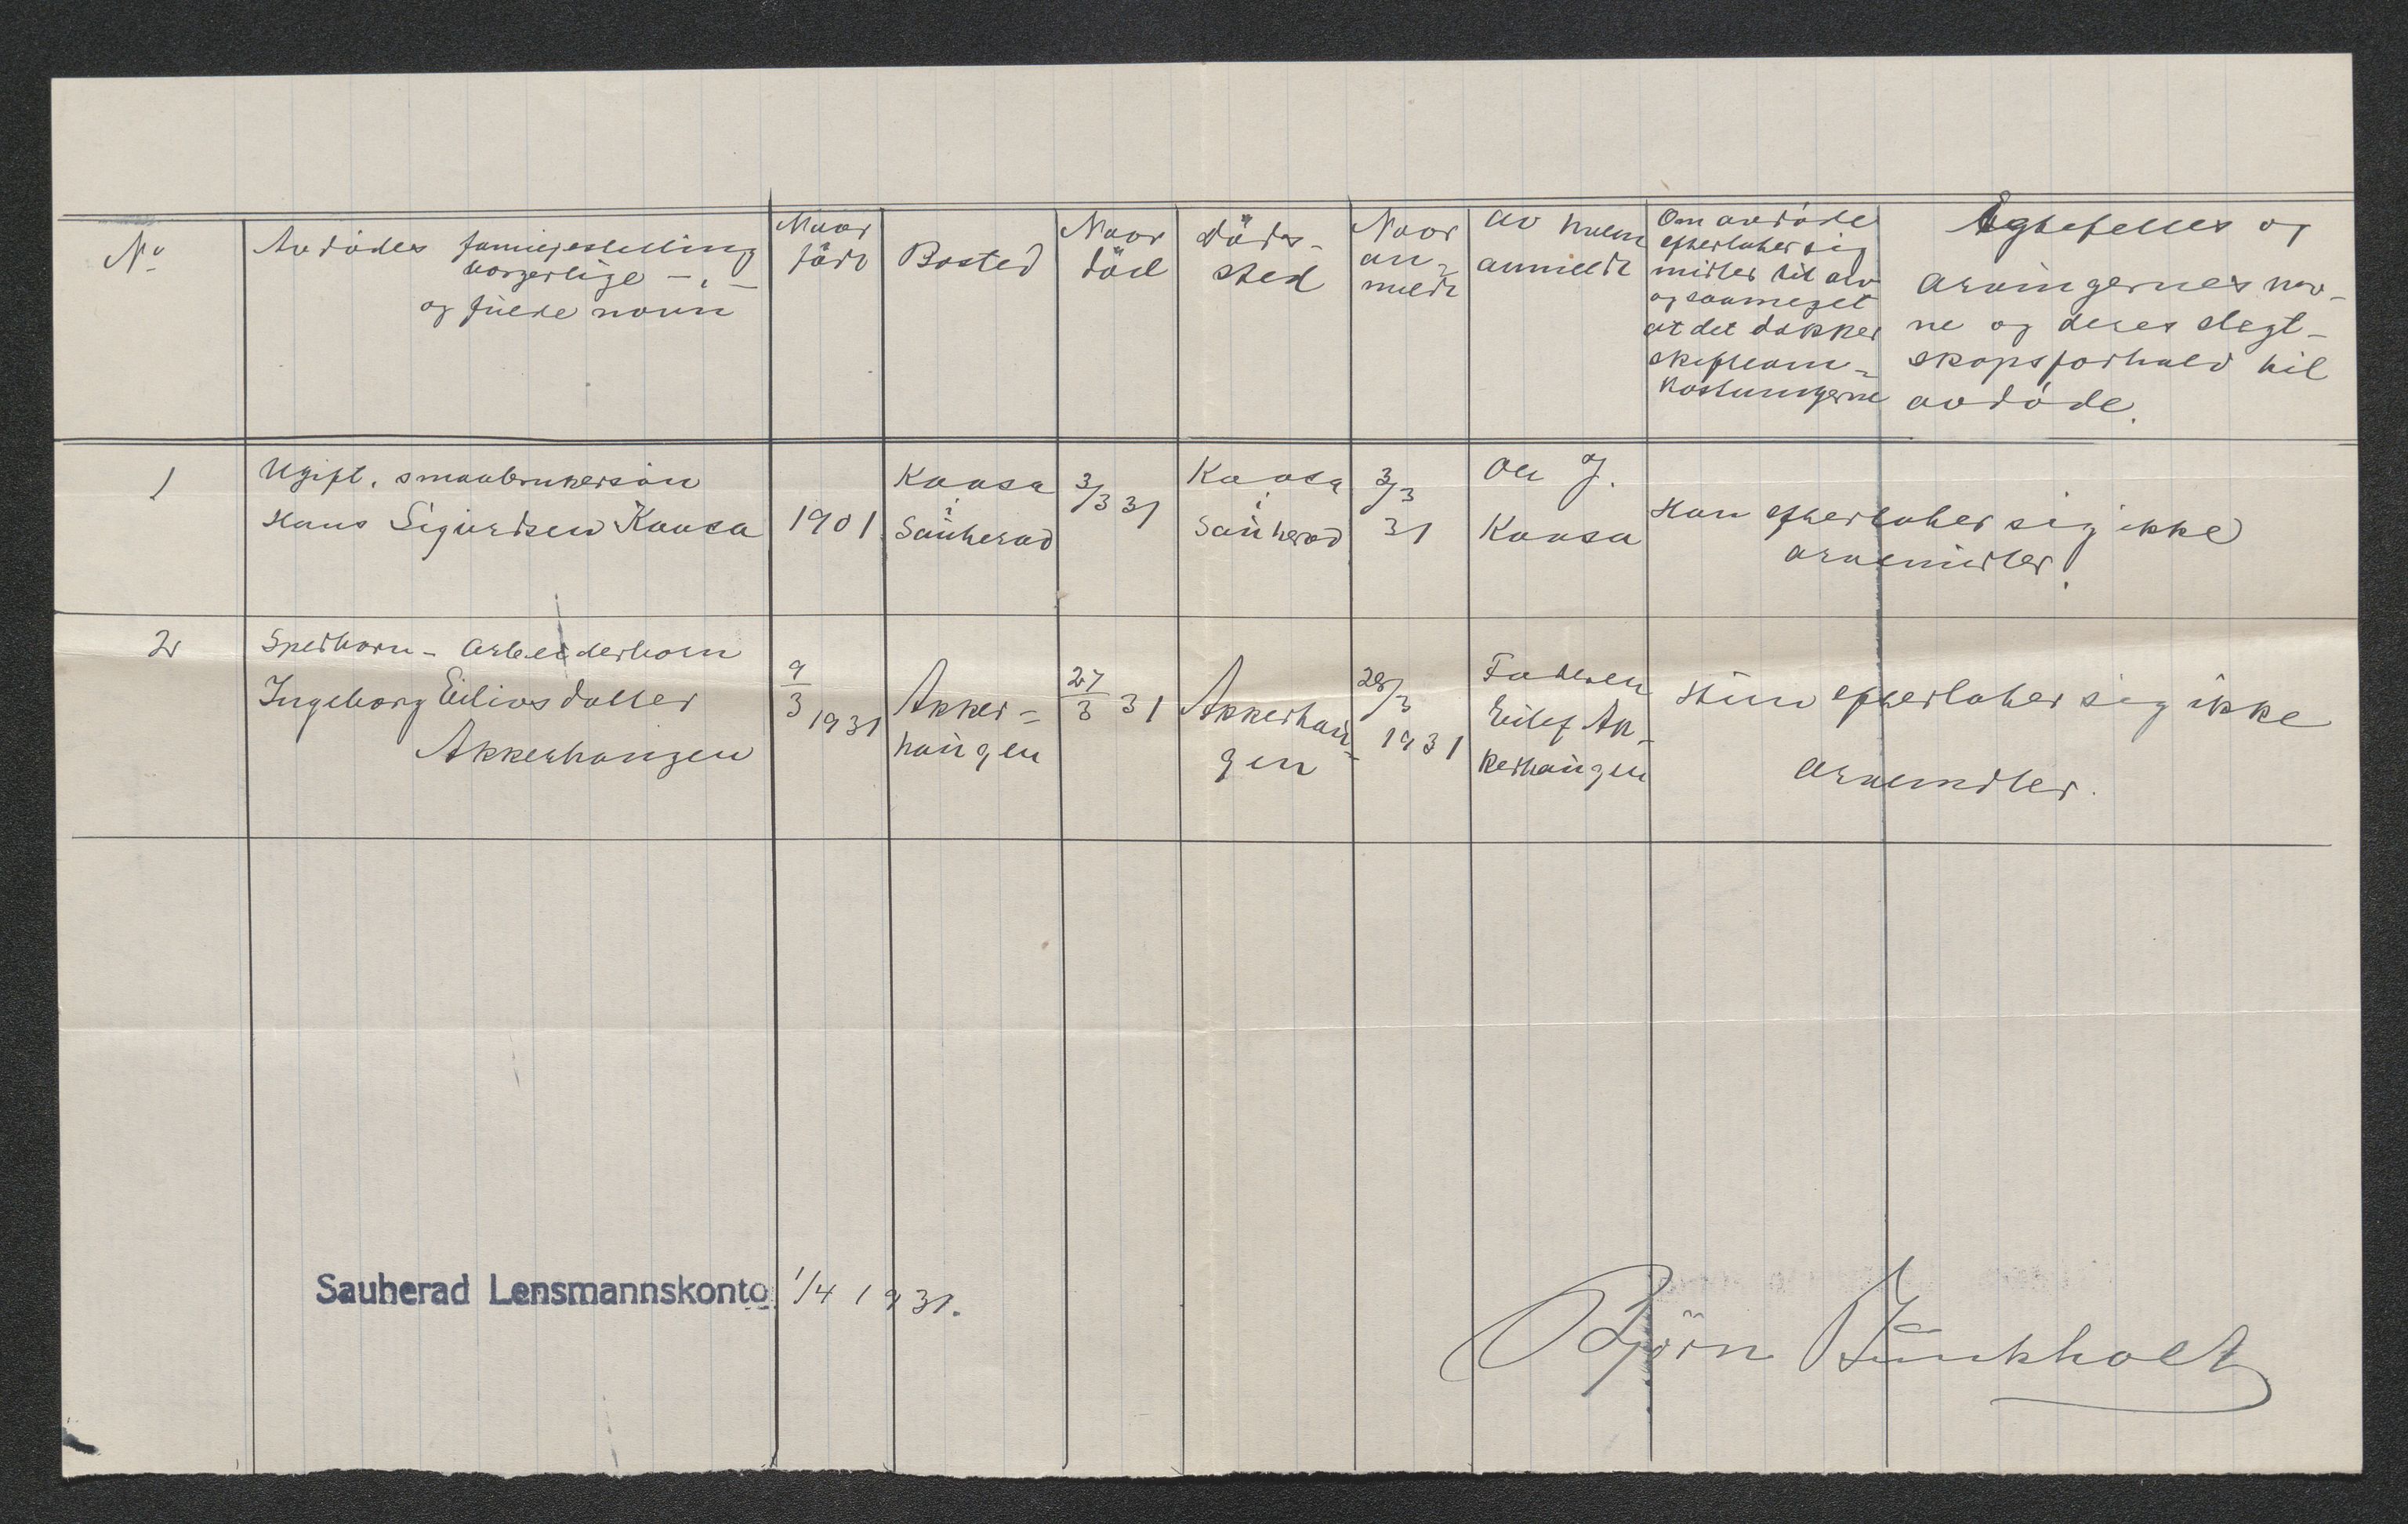 No
Avdødes familjestilling
borgerlige — " —
og fulde navn
Naar
född
Bosted
Naar
död
döds-
sted
Naar
an-
meldt
av hvem
anmeldt
Om avdöde
efterlater sig
midler til arv
og saameget
at det dækker
skifteom-
kostningerne
Egtefelles og
arvingernes nav-
ne og deres slegt-
skapsforhold til
avdöde.
1
Ugift, smaabrukersön
Hans Sigurdsen Kaasa
1901
Kaasa
i
Sauherad
3/3 31
Kaasa
i
Sauherad
3/3
31
Ole J.
Kaasa
Han efterlater sig ikke
arvemidler.
2
Spedbarn - Arbeiderbarn
Ingeborg Eilivsdatter
Akkerhaugen
9/3 1931
Akker-
haugen
27/3 31
Akkerhau-
gen
28/3
1931
Faderen
Eilef Ak-
kerhaugen
Hun efterlater sig ikke
arvemidler.
Sauherad Lensmannskonto 1/4 1931.
Björn